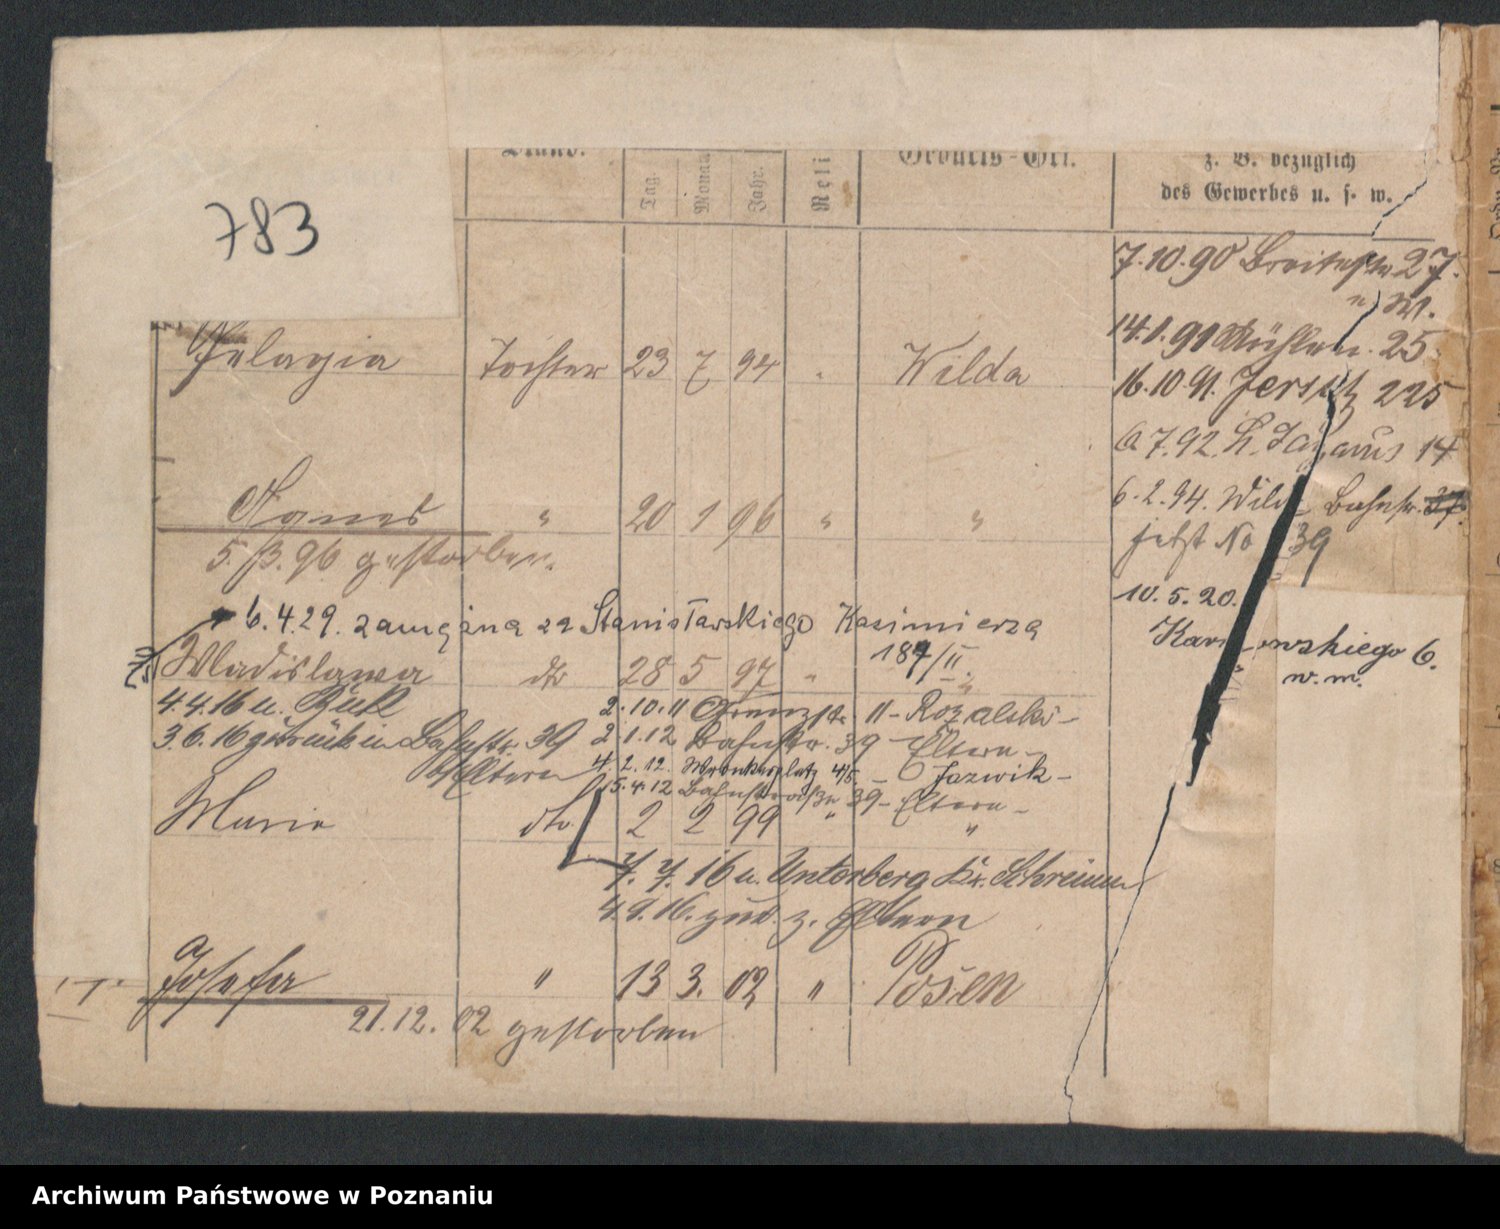 783
Stand.
Tag.
Monat
Jahr.
Reli
Geburts-Ort.
z. B. bezüglich
des Gewerbes u. s. w.
7.10.90 Breitestr 27.
" W.
14.1.91 Mühlen. 25
16.10.91. Jersitz 225
6 7.92. St. Lazarus 14
6.2.94. Wilda Bahnstr. 37.
jetzt No 39
10.5.20.
6.
w.m.
Pelagia Tochter 23 7 94 Wilda
Agnes " 20 1 96 " "
5./3.96 gestorben.
6.4.29. zamężna za Stanisławskiego Kazimierza
187/II.
Wladislawa dto 28 5 97 " "
4.4.16 n. Buk
3.6.16 zurück n. Bahnstr. 39
b/Eltern
2.10.11 11 - Rozalski -
2.1.12 Bahnstr. 39 - Eltern -
4.2.12. Wronkerplatz 4/5. - Jazwik -
15.4.12 Bahnstraße 39 - Eltern -
Marie dto 2 2 99 " "
7.7.16 n. Unterberg Kr. Schrimm
4.9.16. zur. z. Eltern
Josefa " 13 3. 02 " Posen
21.12.02 gestorben
Archiwum Państwowe w Poznaniu